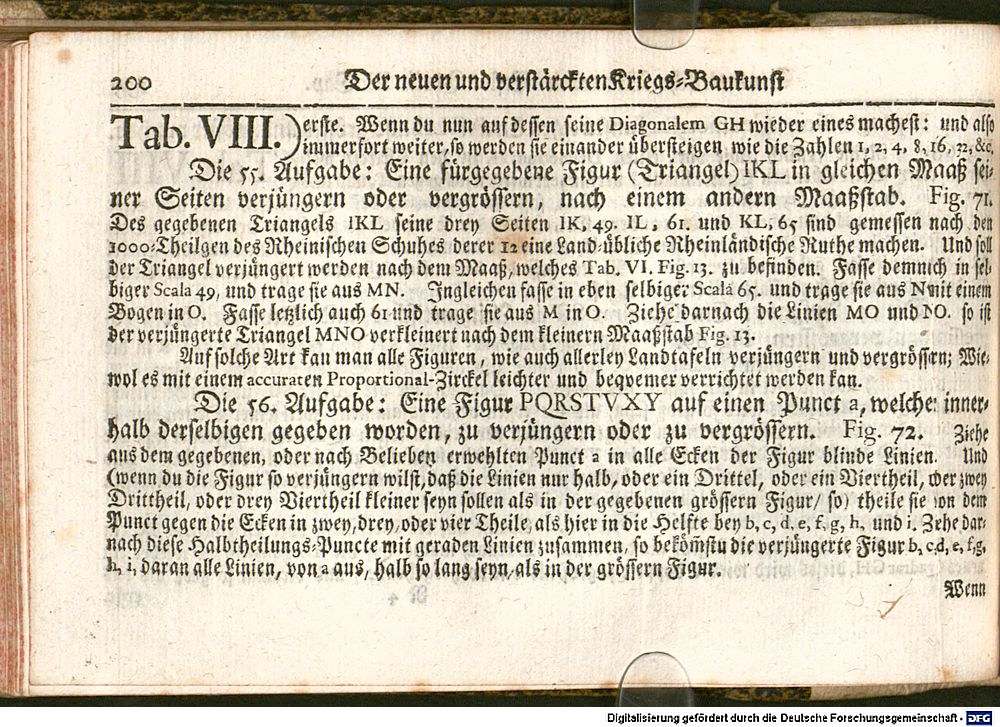 200 Der neuen und verstärckten Kriegs-Baukunst
Tab. VIII.) erste. Wenn du nun auf dessen seine Diagonalem GH wieder eines machest: und also
immerfort weiter, so werden sie einander übersteigen wie die Zahlen 1, 2, 4, 8, 16, 32, &c,
Die 55. Aufgabe: Eine fürgegebene Figur (Triangel) IKL in gleichen Maaß sei-
ner Seiten verjüngern oder vergrössern, nach einem andern Maaßstab. Fig. 71.
Des gegebenen Triangels IKL seine drey Seiten IK, 49. IL, 61. und KL, 65 sind gemessen nach den
1000-Theilgen des Rheinischen Schuhes derer 12 eine Land-übliche Rheinländische Ruthe machen. Und soll
der Triangel verjüngert werden nach dem Maaß, welches Tab. VI. Fig. 13. zu befinden. Fasse demnich in sel-
biger Scala 49, und trage sie aus MN. Ingleichen fasse in eben selbiger Scala 65. und trage sie aus N mit einem
Bogen in O. Fasse letzlich auch 61 und trage sie aus M in O. Ziehe darnach die Linien MO und NO. so ist
der verjüngerte Triangel MNO verkleinert nach dem kleinern Maaßstab Fig. 13.
Auf solche Art kan man alle Figuren, wie auch allerley Landtafeln verjüngern und vergrössern; Wie-
wol es mit einem accuraten Proportional-Zirckel leichter und beqvemer verrichtet werden kan.
Die 56. Aufgabe: Eine Figur PQRSTVXY auf einen Punct a, welcher inner-
halb derselbigen gegeben worden, zu verjüngern oder zu vergrössern. Fig. 72. Ziehe
aus dem gegebenen, oder nach Belieben erwehlten Punct a in alle Ecken der Figur blinde Linien. Und
(wenn du die Figur so verjüngern wilst, daß die Linien nur halb, oder ein Drittel, oder ein Viertheil, oder zwey
Drittheil, oder drey Viertheil kleiner seyn sollen als in der gegebenen grössern Figur/ so) theile sie von dem
Punct gegen die Ecken in zwey, drey, oder vier Theile, als hier in die Helfte bey b, c, d, e, f, g, h, und i. Zehe dar-
nach diese Halbtheilungs-Puncte mit geraden Linien zusammen, so bekömstu die verjüngerte Figur b, c, d, e, f, g,
h, i, daran alle Linien, von a aus, halb so lang seyn, als in der grössern Figur.
Wenn
Digitalisierung gefördert durch die Deutsche Forschungsgemeinschaft - DFG